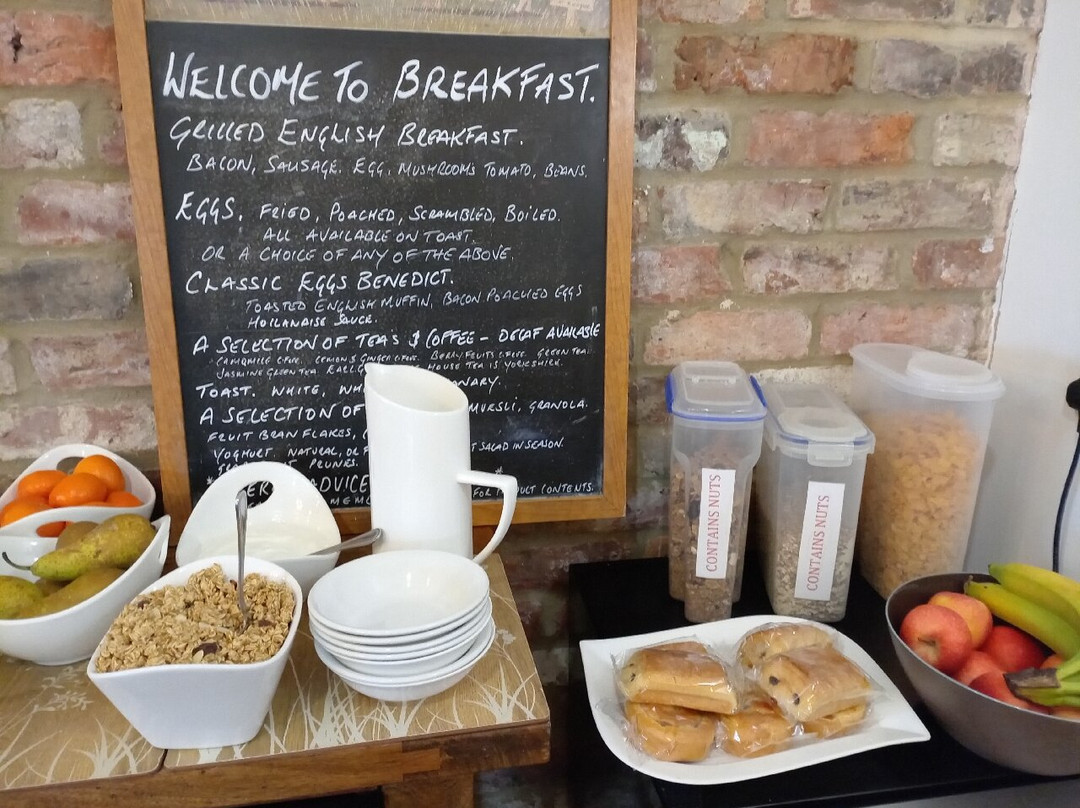 WELCOME TO BREAKFAST.
GRILLED ENGLISH BREAKFAST.
BACON, SAUSAGE. EGG, MUSHROOMS TOMATO, BEANS.
EGGS. FRIED, POACHED, SCRAMBLED, BOILED.
ALL AVAILABLE ON TOAST.
OR A CHOICE OF ANY OF THE ABOVE.
CLASSIC EGGS BENEDICT.
TOASTED ENGLISH MUFFIN, BACON POACHED EGGS
HOLLANAISE SAUCE.
A SELECTION OF TEA'S & COFFEE - DECAF AVAILABLE
CAMOMILE LEMON & GINGER BERRY FRUITS GREEN TEA
JASMINE GREEN TEA EARL HOUSE TEA IS YORKSHIRE.
TOAST. WHITE, WH NARY.
A SELECTION OF MUESLI, GRANOLA.
FRUIT BRAN FLAKES,
YOGHURT, NATURAL, OR F T SALAD IN SEASON.
PRUNES.
ADVICE
FOR CONTENTS.
CONTAINS NUTS
CONTAINS NUTS